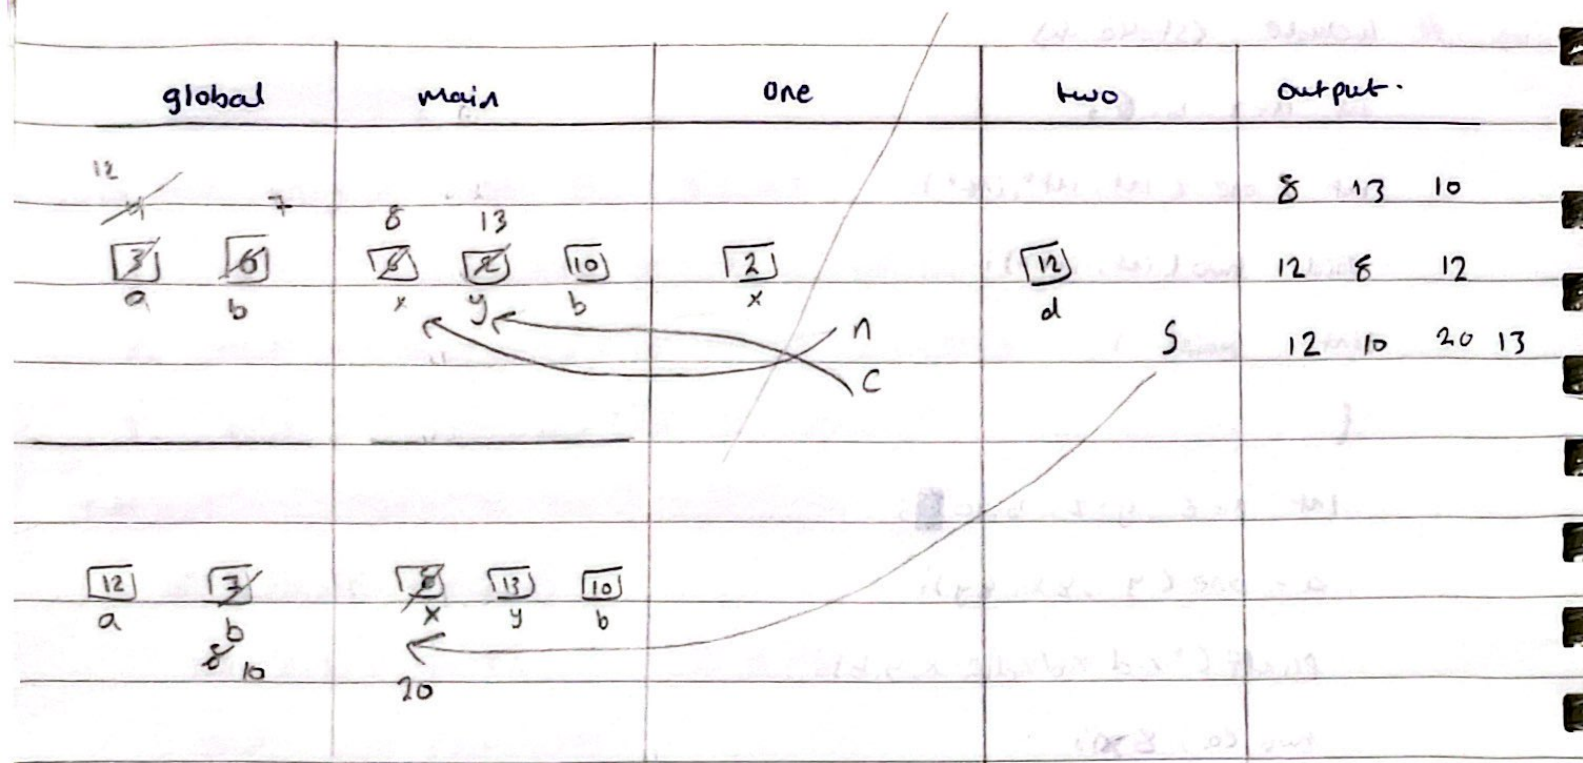 global main one two output.
12 7 8 13 10
8 13
3 6 6 2 10 2 12 12 8 12
a b x y b x d
n S 12 10 20 13
c
12 7 8 13 10
a b x y b
8 10
20